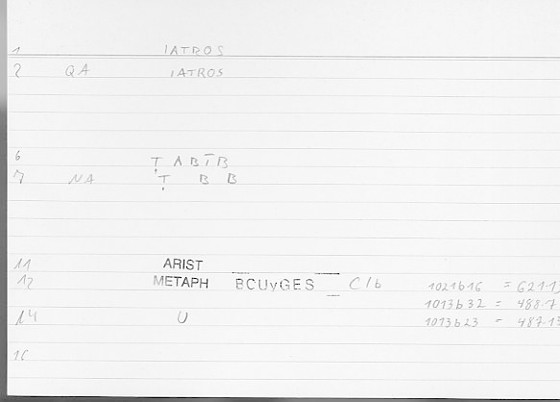 1 IATROS
2 QA IATROS
6 Ṭ A B Ī B
7 NA Ṭ B B
11 ARIST
12 METAPH BCUγGES C/b 1021b16 = 621-13
1013b32 = 488-7
14 U 1013b23 = 487-13